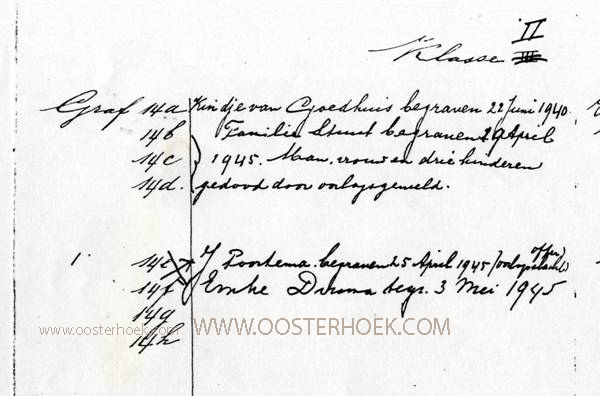 Klasse II III
Graf 14a Kindje van Goedhuis begraven 22 Juni 1940.
14b Familie Stuut begraven 29 April
14c 1945. Man, vrouw en drie kinderen
14d. gedood door oorlogsgeweld.
1 14e J Poortema begraven 25 April 1945 (oorlogsslacht offer)
14f Emke Duursma begr. 3 Mei 1945
14g
www.oosterhoek.com WWW.OOSTERHOEK.COM
14h